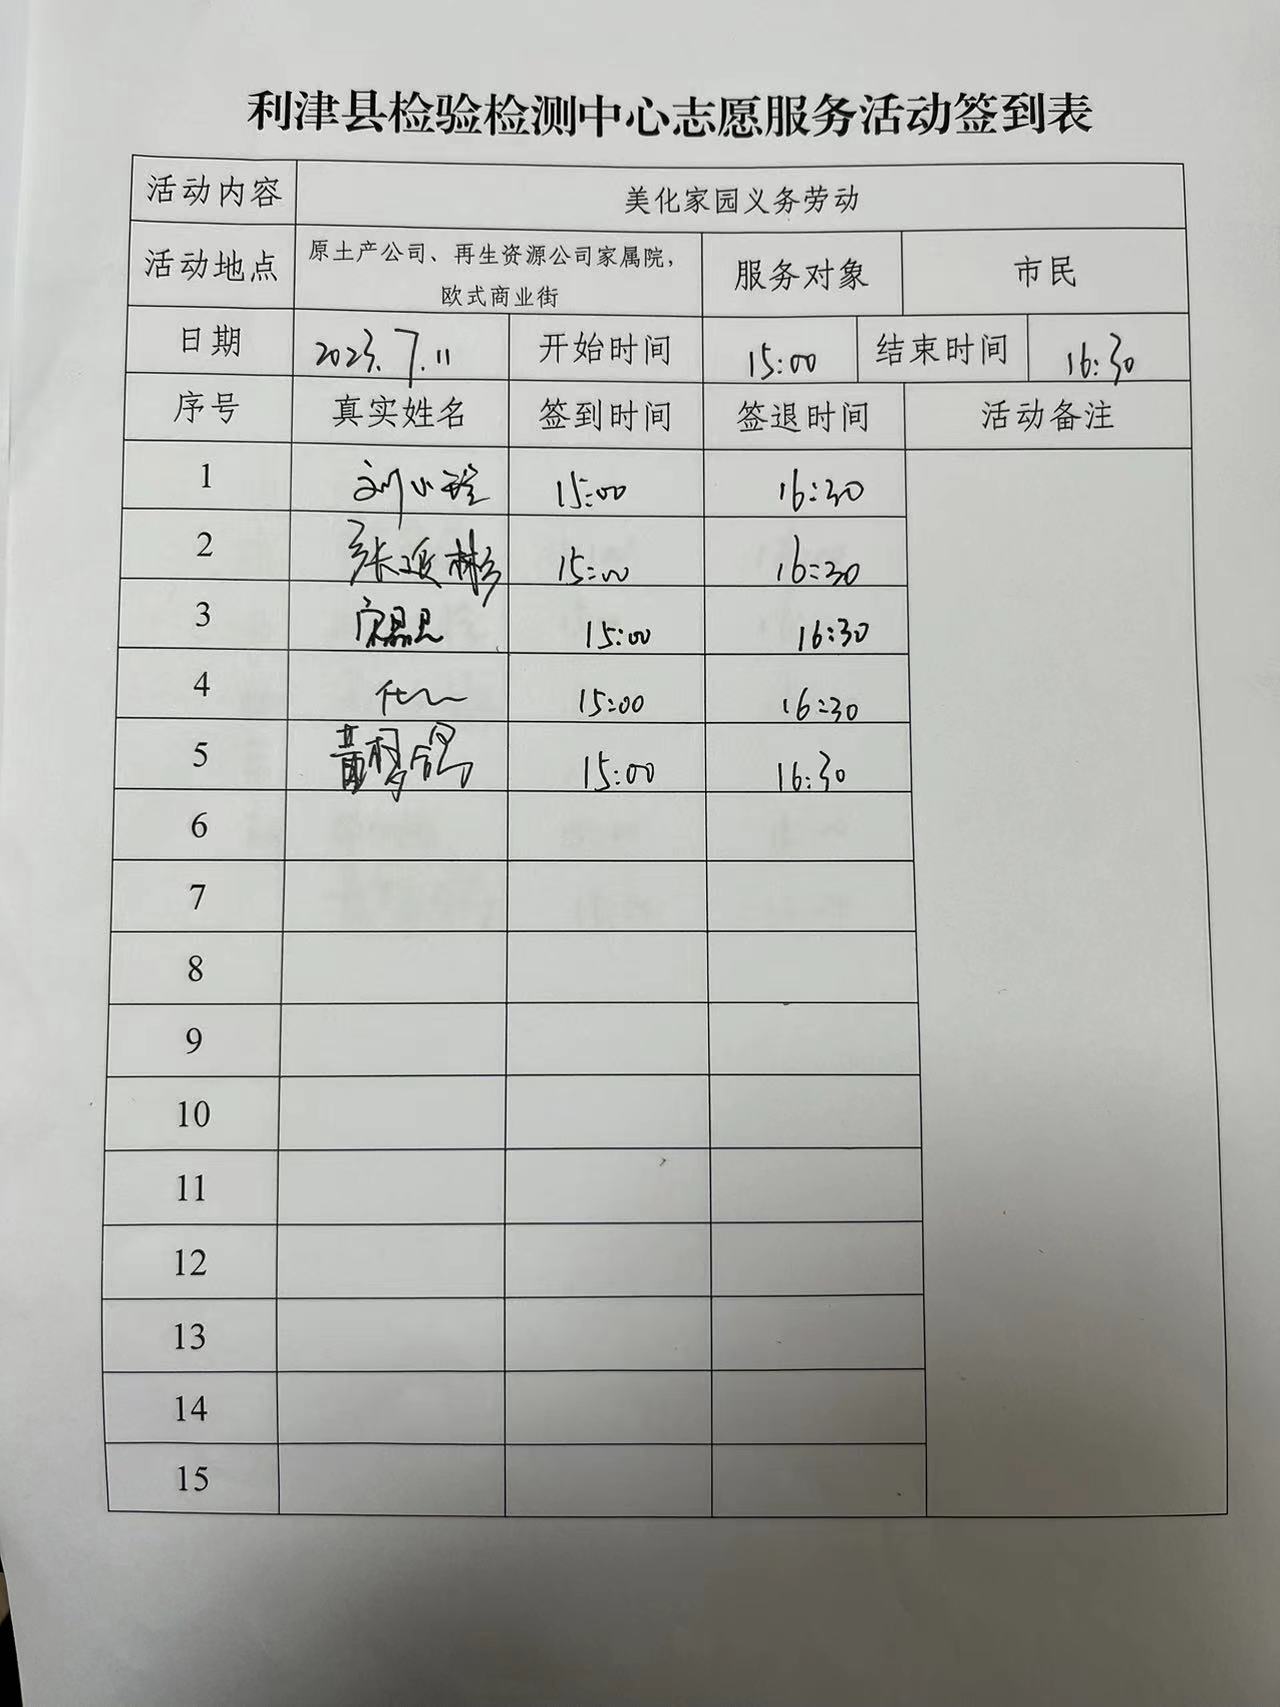 利津县检验检测中心志愿服务活动签到表
活动内容 美化家园义务劳动
活动地点 原土产公司、再生资源公司家属院，
欧式商业街 服务对象 市民
日期 2023.7.11 开始时间 15:00 结束时间 16:30
序号 真实姓名 签到时间 签退时间 活动备注
1 刘小 15:00 16:30
2 张 彬 15:00 16:30
3 15:00 16:30
4 15:00 16:30
5 黄梦鸽 15:00 16:30
6
7
8
9
10
11
12
13
14
15